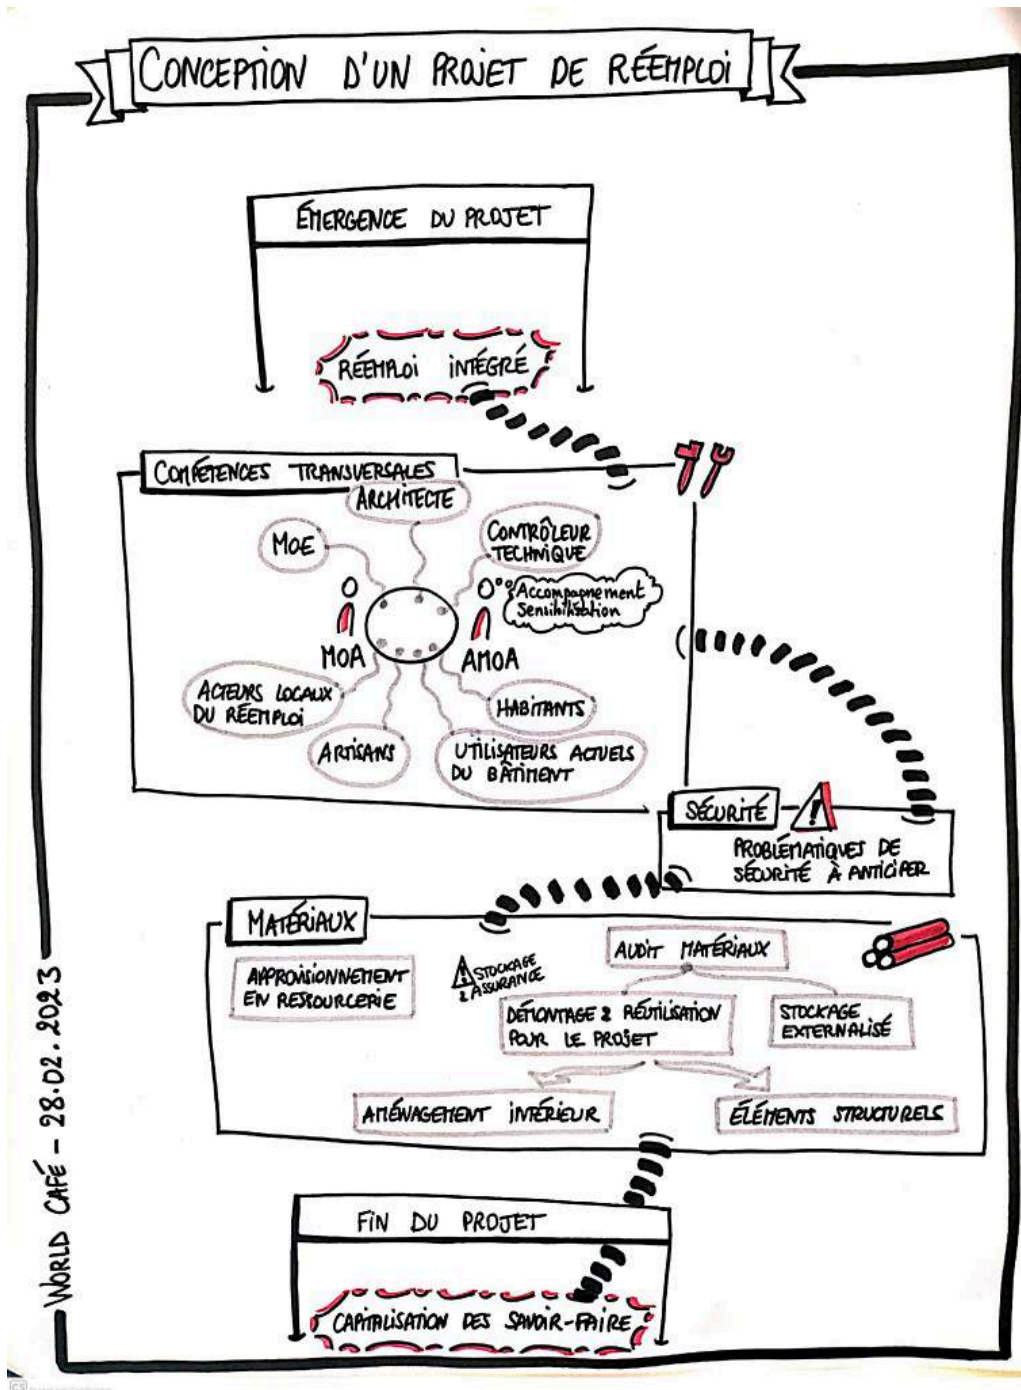 CONCEPTION D'UN PROJET DE RÉEMPLOI
ÉMERGENCE DU PROJET
RÉEMPLOI INTÉGRÉ
COMPÉTENCES TRANSVERSALES
ARCHITECTE
MOE
CONTRÔLEUR
TECHNIQUE
Accompagnement
Sensibilisation
MOA
AMOA
ACTEURS LOCAUX
DU RÉEMPLOI
HABITANTS
ARTISANS
UTILISATEURS ACTUELS
DU BÂTIMENT
SÉCURITÉ
!
PROBLÉMATIQUES DE
SÉCURITÉ À ANTICIPER
MATÉRIAUX
APPROVISIONNEMENT
EN RESSOURCERIE
! STOCKAGE
& ASSURANCE
AUDIT MATÉRIAUX
DÉMONTAGE & RÉUTILISATION
POUR LE PROJET
STOCKAGE
EXTERNALISÉ
AMÉNAGEMENT INTÉRIEUR
ÉLÉMENTS STRUCTURELS
FIN DU PROJET
CAPITALISATION DES SAVOIR-FAIRE
WORLD CAFÉ - 28.02.2023
CS